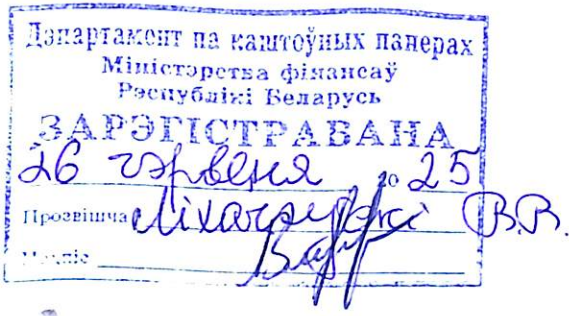 Дэпартамент па каштоўных паперах
Міністэрства фінансаў
Рэспублікі Беларусь
ЗАРЭГІСТРАВАНА
26 чэрвеня 20 25
Прозвішча В.В.
Подпіс